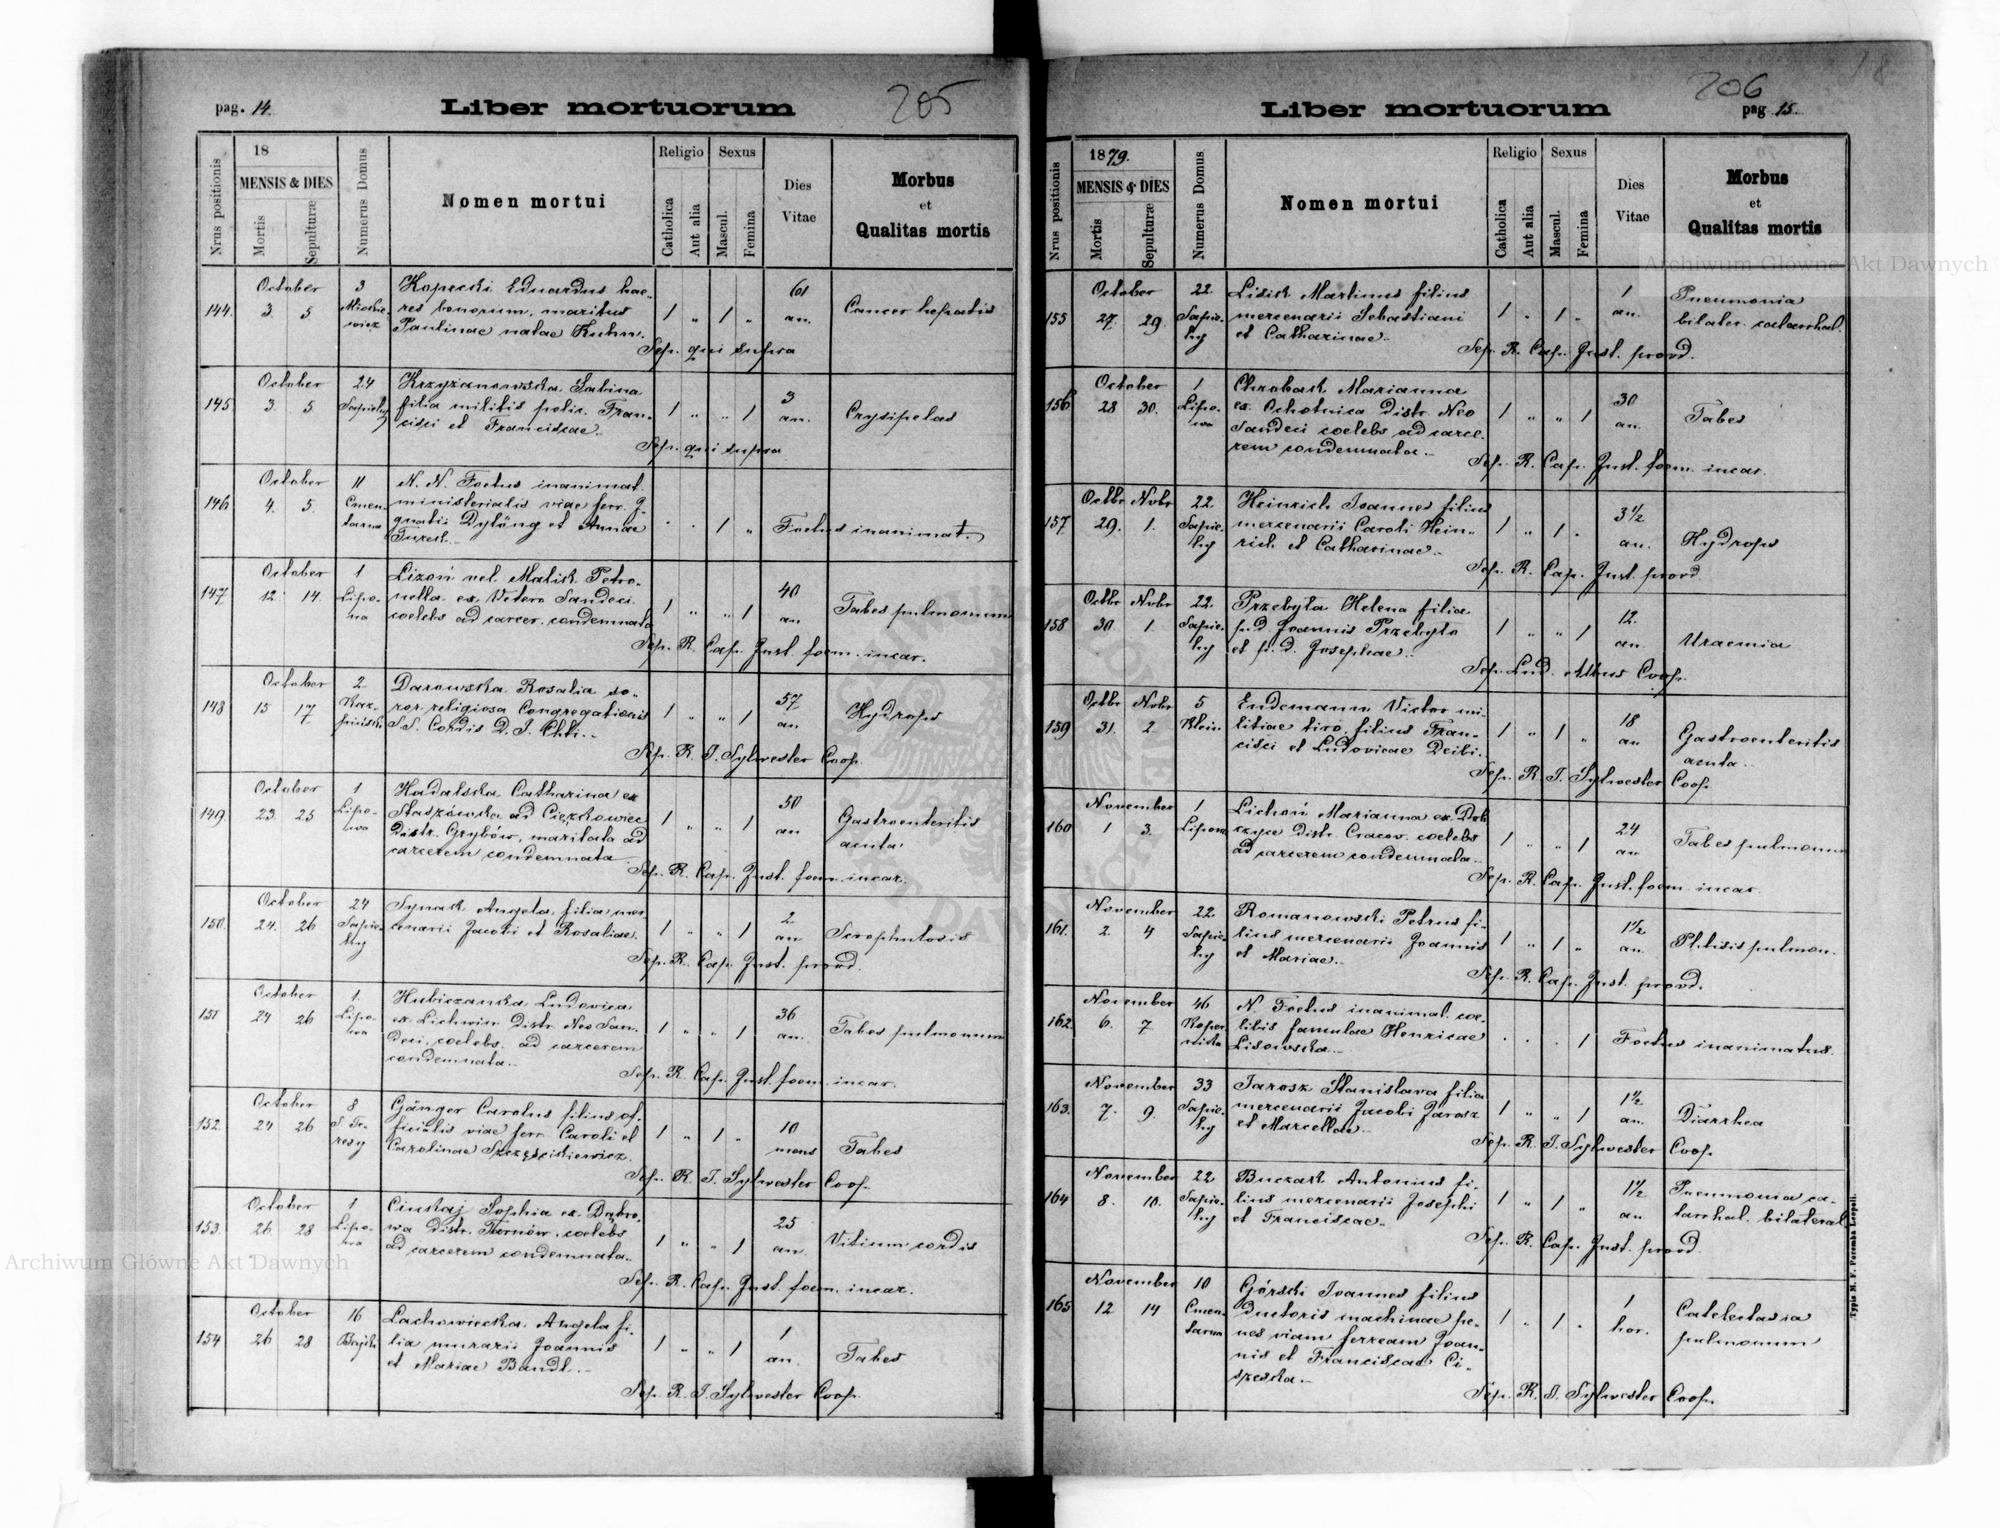 pag. 14
Liber mortuorum
205
Nrus positionis
18
MENSIS & DIES
Mortis
Sepulturæ
Numerus Domus
Nomen mortui
Religio
Catholica
Aut alia
Sexus
Mascul.
Femina
Dies
Vitae
Morbus
et
Qualitas mortis
144. October 3 5 3 Mickie-
wicz
Kopecki Eduardus hae-
res bonorum, maritus
Paulinae natae Kuhn.
1 „ 1 „ 61
an. Cancer hepatis
Sep. qui supra
145 October 3. 5 24 Sapiehy
Krzyżanowska Sabina
filia militis polic. Fran-
cisci et Franciscae..
1 „ „ 1 3
an. Erysipelas
Sep. qui supra
146 October 4. 5. 11 Cmen-
tarna
N. N. Foetus inanimat.
ministerialis viae ferr. J-
gnatii Dylong et Annae
Turek..
. . 1 „ Foetus inanimat.
147. October 12 14 1 Lipo-
wa
Lizoń vel Malik Petro-
nella ex Vetero Sandeci
coelebs ad carcer. condemnata
1 „ „ 1 40
an Tabes pulmonum
Sep. R. Cap. Just. foem. incar.
148 October 15 17 2
Darowska Rosalia so-
ror religiosa Congregationis
S.S. Cordis D. J. Chti..
1 „ „ 1 57
an Hydrops
Sep. R. J. Sylwester Coop.
149. October 23. 25 1 Lipo-
wa
Hadalska Catharina ex
Staszówka ad Ciężkowice
Distr. Grybów, maritata ad
carcerem condemnata
1 „ „ 1 50
an Gastroenteritis
acuta
Sep. R. Cap. Just. foem. incar.
150. October 24. 26 24 Sapie-
hy
Synak Angela filia mer-
cenarii Jacobi et Rosaliae.
1 „ „ 1 2
an Scrophulosis
Sep. R. Cap. Just. provd.
151 October 24 26 1. Lipo-
wa
Hubiczanka Ludovica
ex Lichwin Distr. Neo San-
deci, coelebs ad carcerem
condemnata..
1 „ „ 1 36
an. Tabes pulmonum
Sep. R. Cap. Just. foem. incar.
152. October 24 26 8 S. Te-
resy
Gänger Carolus filius of-
ficialis viae ferr. Caroli et
Carolinae Szczęścikiewicz.
1 „ 1 „ 10
mens Tabes
Sep. R. J. Sylwester Coop.
153. October 26. 28 1 Lipo-
wa
Ciukaj Sophia ex Dąbro-
wa distr. Tarnów, coelebs
ad carcerem condemnata..
1 „ „ 1 25
an. Vitium cordis
Sep. R. Cap. Just. foem. incar.
154 October 26 28 16
Lachowiecka Angela fi-
lia murarii Joannis
et Mariae Bandl..
1 „ „ 1 1
an. Tabes
Sep. R. J. Sylwester Coop.
Liber mortuorum
206
pag 15.
Nrus positionis
1879.
MENSIS & DIES
Mortis
Sepulturæ
Numerus Domus
Nomen mortui
Religio
Catholica
Aut alia
Sexus
Mascul.
Femina
Dies
Vitae
Morbus
et
Qualitas mortis
155 October 27. 29. 22. Sapie-
hy
Lisick Martinus filius
mercenarii Sebastiani
et Catharinae..
1 „ 1 „ 1
an. Pneumonia
bilater. catarrhal.
Sep. R. Cap. Just. provd.
156 October 28 30. 1 Lipo-
wa
Chrobak Marianna
ex Ochotnica Distr. Neo
Sandeci coelebs ad carce-
rem condemnata..
1 „ „ 1 30
an. Tabes
Sep. R. Cap. Just. foem. incar.
157 Octbr. Novbr 29. 1. 22. Sapie-
hy
Heinrich Joannes filius
mercenarii Caroli Hein-
rich et Catharinae..
1 „ 1 „ 3 1/2
an. Hydrops
Sep. R. Cap. Just. provd.
158 Octbr Novbr 30. 1 22. Sapie-
hy
Przebyła Helena filia
p. d. Joannis Przebyło
et p. d. Josephae..
1 „ „ 1 12.
an. Uraemia
Sep. Lud. Coop.
159 Octbr Novbr 31. 2 5 Klein
Endemann Victor mi-
litiae tiro, filius Fran-
cisci et Ludovicae Deibi.
1 „ 1 „ 18
an Gastroenteritis
acuta..
Sep. R. J. Sylwester Coop.
160 November 1 3. 1 Lipowa
Lichoń Marianna ex Dob-
czyce Distr. Cracov. coelebs
ad carcerem condemnata..
1 „ „ 1 24
an. Tabes pulmonum
Sep. R. Cap. Just. foem. incar.
161. November 2. 4 22. Sapie-
hy
Romanowski Petrus fi-
lius mercenarii Joannis
et Mariae..
1 „ 1 „ 1 1/2
an. Phtisis pulmon.
Sep. R. Cap. Just. provd.
162. November 6. 7 46 Koper-
nika
N. Foetus inanimat. coe-
libis famulae Henricae
Lisowska..
. . . 1 Foetus inanimatus.
163. November 7. 9. 33 Sapie-
hy
Jarosz Stanislava filia
mercenarii Jacobi Jarosz
et Marcellae..
1 „ „ 1 1 1/2
an. Diarrhea
Sep. R. J. Sylwester Coop.
164 November 8. 10. 22. Sapie-
hy
Buczak Antonius fi-
lius mercenarii Josephi
et Franciscae..
1 „ 1 „ 1 1/2
an. Pneumonia ca-
tarrhal. bilateral
Sep. R. Cap. Just. provd.
165 November 12 14 10 Cmen-
tarna
Górski Joannes filius
Ductoris machinae pe-
nes viam ferream Joan-
nis et Franciscae Ci-
szeska..
1 „ 1 „ 1
hor. Catelectasia
pulmonum
Sep. R. J. Sylwester Coop.
Typis M. F. Poremba Leopoli.
Archiwum Główne Akt Dawnych
Archiwum Główne Akt Dawnych